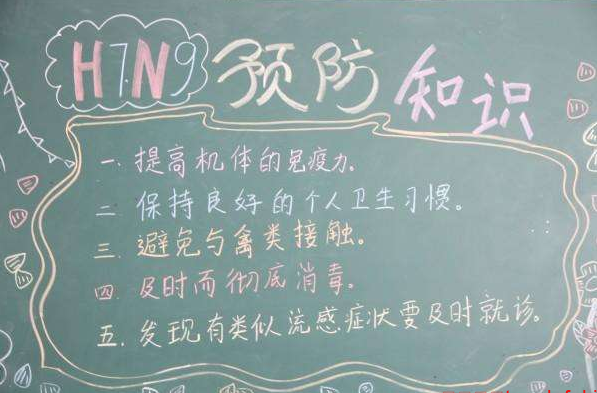 H7N9 预防知识
一.提高机体的免疫力.
二.保持良好的个人卫生习惯。
三.避免与禽类接触。
四.及时而彻底消毒。
五.发现有类似流感症状要及时就诊。